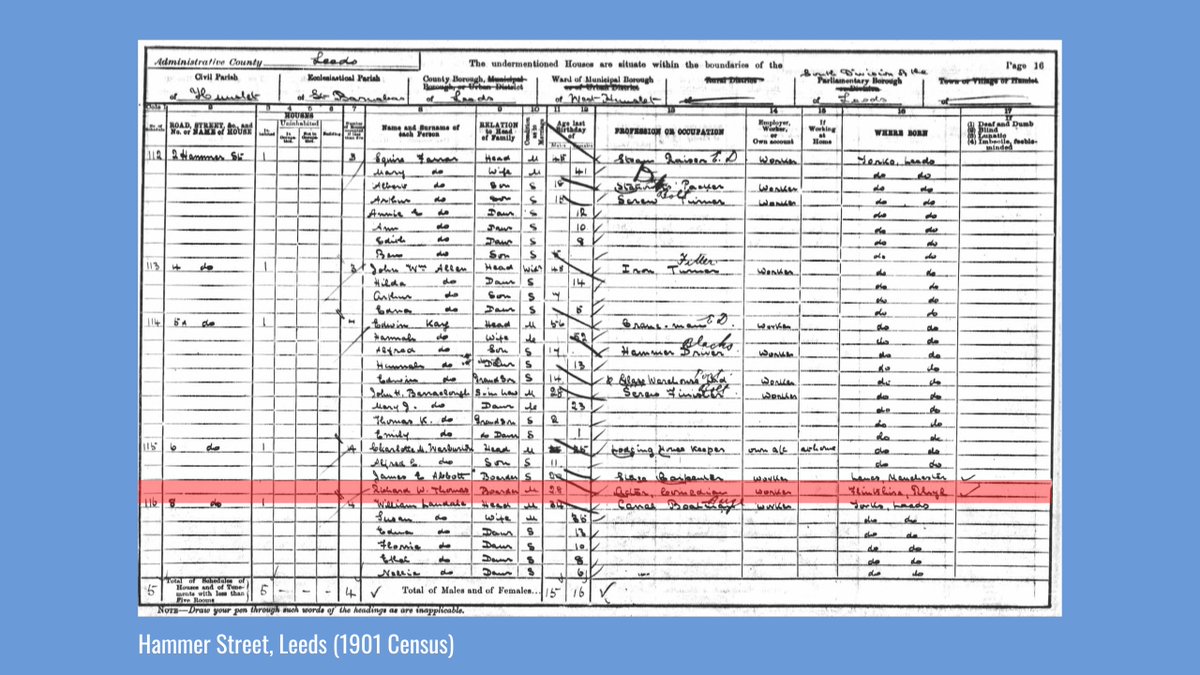 Administrative County Leeds The undermentioned Houses are situate within the boundaries of the Page 16
Civil Parish Ecclesiastical Parish County Borough, Municipal Borough or Urban District Ward of Municipal Borough or of Urban District Rural District South Division of the Parliamentary Borough or Division Town or Village or Hamlet
of Hunslet of St Barnabas of Leeds of West Hunslet of of Leeds of
ROAD, STREET, &c., and No. or NAME of HOUSE HOUSES Uninhabited Name and Surname of each Person RELATION to Head of Family Age last Birthday of PROFESSION OR OCCUPATION Employer, Worker, or Own account If Working at Home WHERE BORN (1) Deaf and Dumb (2) Blind (3) Lunatic (4) Imbecile, feeble-minded
112 2 Hammer St 1 3 Squire Farrar Head M 45 Steam Raiser E D Worker Yorks, Leeds
Mary do Wife M 41 do do
Albert do Son S Packer Worker do do
Arthur do Son S 15 Screw Bolt Turner Worker do do
Annie E do Daur S 12 do do
Ann do Daur S 10 do do
Edith do Daur S 8 do do
Ben do Son S do do
113 4 do 1 3 John Wm Allen Head Widr 48 Iron Turner Fitter Worker do do
Hilda do Daur S 14 do do
Arthur do Son S 7 do do
Edna do Daur S 5 do do
114 do 1 Edwin Kay Head M 56 Crane-man E D Worker do do
Hannah do Wife M 52 do do
Alfred do Son S 17 Hammer Driver Blacks Worker do do
Hannah do Daur S 13 do do
Edwin do Grandson S 14 Glass Warehouse Worker do do
John H. Barraclough Son in law M 28 Screw Bolt Finisher Worker do do
Mary J. do Daur M 23 do do
Thomas K. do Grandson S 2 do do
Emily do do Daur S 1 do do
115 6 do 1 4 Charlotte A. Warburton Head M 35 Lodging House Keeper own a/c at home do do
Alfred E. do Son S 11 do do
James E Abbott Boarder S Stage Carpenter worker Lancs, Manchester
Richard W. Thomas Boarder M 28 Actor, Comedian worker Flintshire, Rhyl
116 8 do 1 4 William Landale Head M 34 Canal Boatman worker Yorks, Leeds
Susan do Wife M 35 do do
Edna do Daur S 13 do do
Florrie do Daur S 10 do do
Ethel do Daur S 8 do do
Nellie do Daur S 6 do do
5 Total of Schedules of Houses and of Tenements with less than Five Rooms 5 - - - 4 Total of Males and of Females... 15 16
NOTE—Draw your pen through such words of the headings as are inapplicable.
Hammer Street, Leeds (1901 Census)